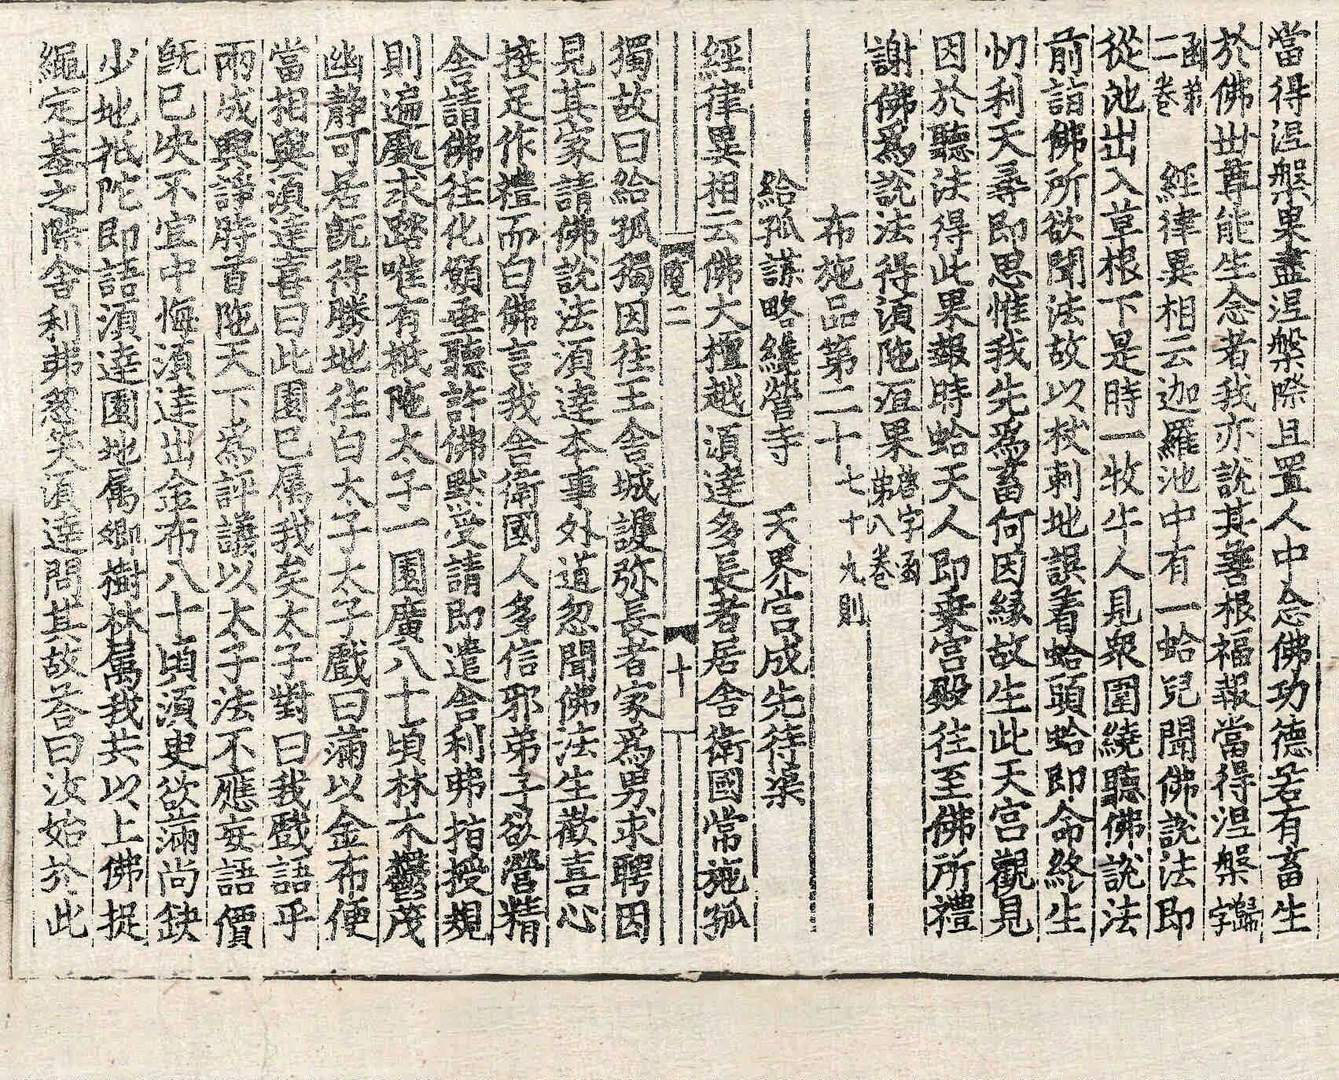 當得涅槃果盡涅槃際且置人中念佛功德若有畜生
於佛世尊能生念者我亦說其善根福報當得涅槃歸字
函第二卷 經律異相云迦羅池中有一蛤兒聞佛說法即
從池出入草根下是時一牧牛人見衆圍繞聽佛說法
前詣佛所欲聞法故以杖刺地誤著蛤頭蛤即命終生
忉利天尋即思惟我先爲畜何因緣故生此天宮觀見
因於聽法得此果報時蛤天人即乗宮殿往至佛所禮
謝佛爲說法得湏陁洹果啓字函第八卷
布施品第二十七十九則
給孤謀略纔營寺 天界宫成先待渠
經律異相云佛大檀越湏達多長者居舍衛國常施孤
覧二 十
獨故曰給孤獨因往王舍城護弥長者家爲男求聘因
見其家請佛說法湏達本事外道忽聞佛法生歡喜心
接足作禮而白佛言我舍衛國人多信邪弟子欲營精
舍請佛往化願垂聽許佛黙受請即遣舍利弗指授規
則遍處求踏唯有祇陁太子一園廣八十頃林木鬱茂
幽静可居旣得勝地往白太子太子戲曰滿以金布便
當相與湏達喜曰此園已属我矣太子對曰我戲語乎
兩成興諍時首陁天下爲評議以太子法不應妄語價
旣已决不宜中悔湏達出金布八十頃須臾欲滿尚缺
少地祇陀即語湏達園地属卿樹林属我共以上佛捉
繩定基之際舍利弗忽笑湏達問其故荅曰汝始於此